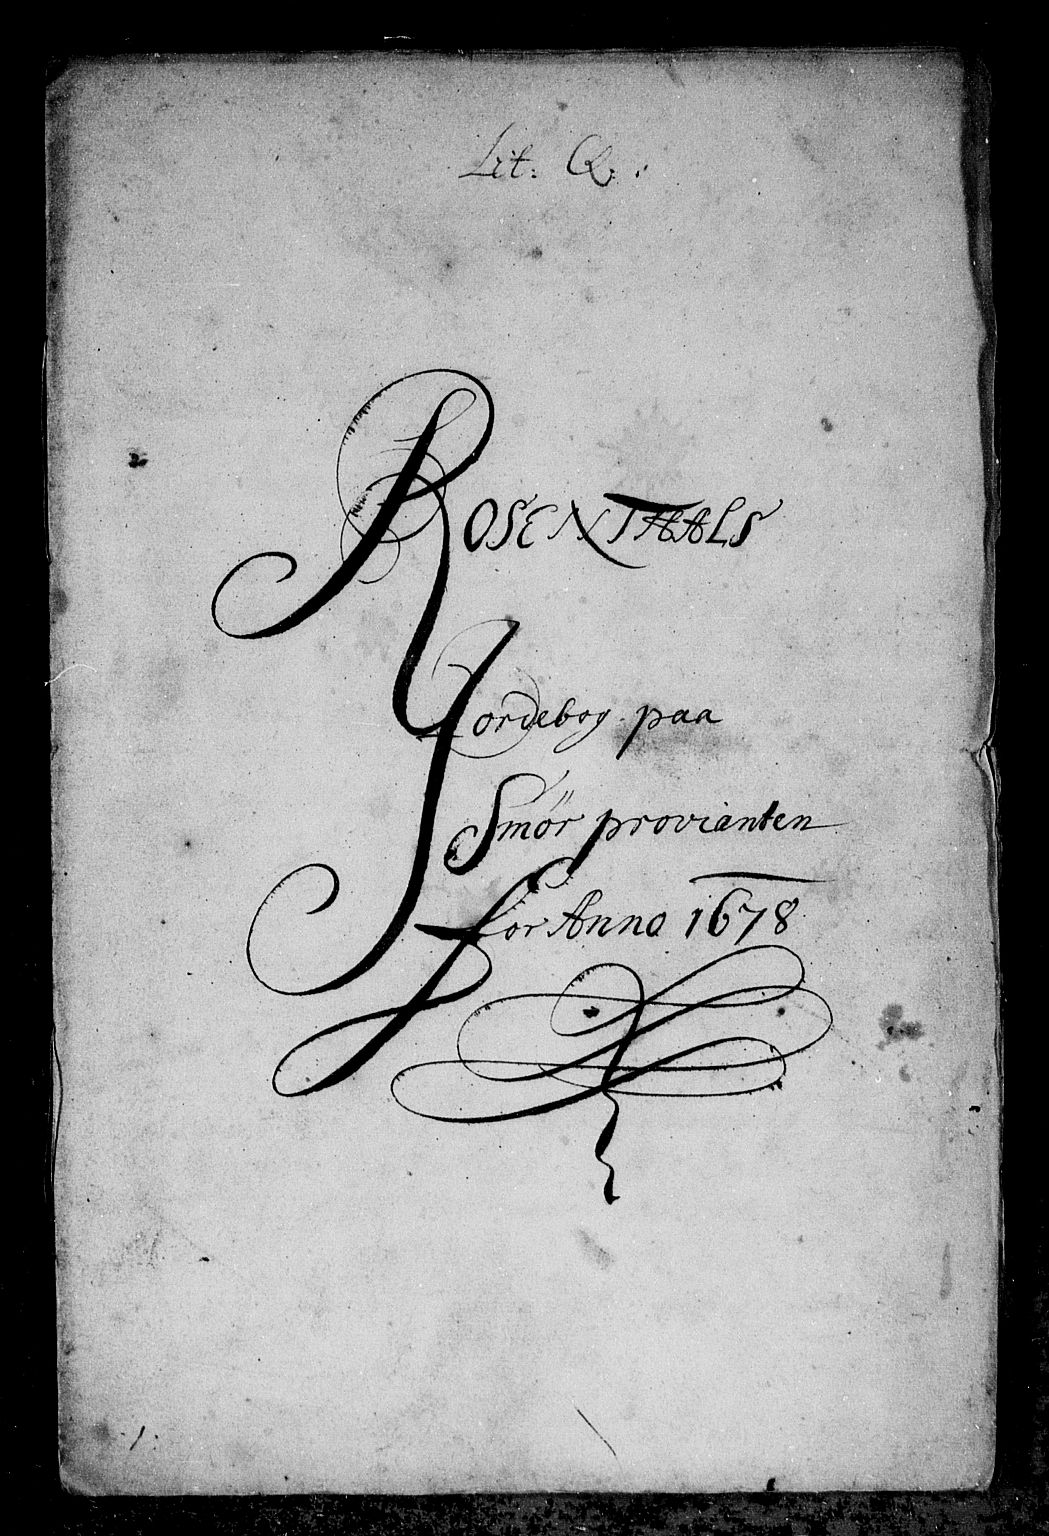 Lit: Q:
ROSENTHALS
Jordebog paa
Smör provianten
for Anno 1678
1: